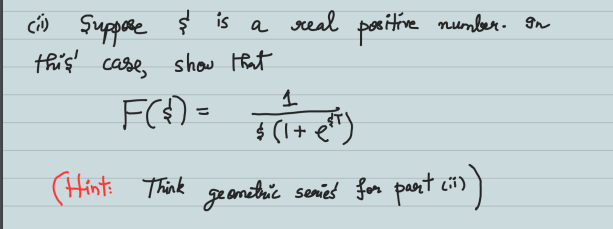 (ii) Suppose s is a real positive number. In
this case, show that
F(s) = 1 / s (1 + e^{sT})
(Hint: Think geometric series for part (ii))